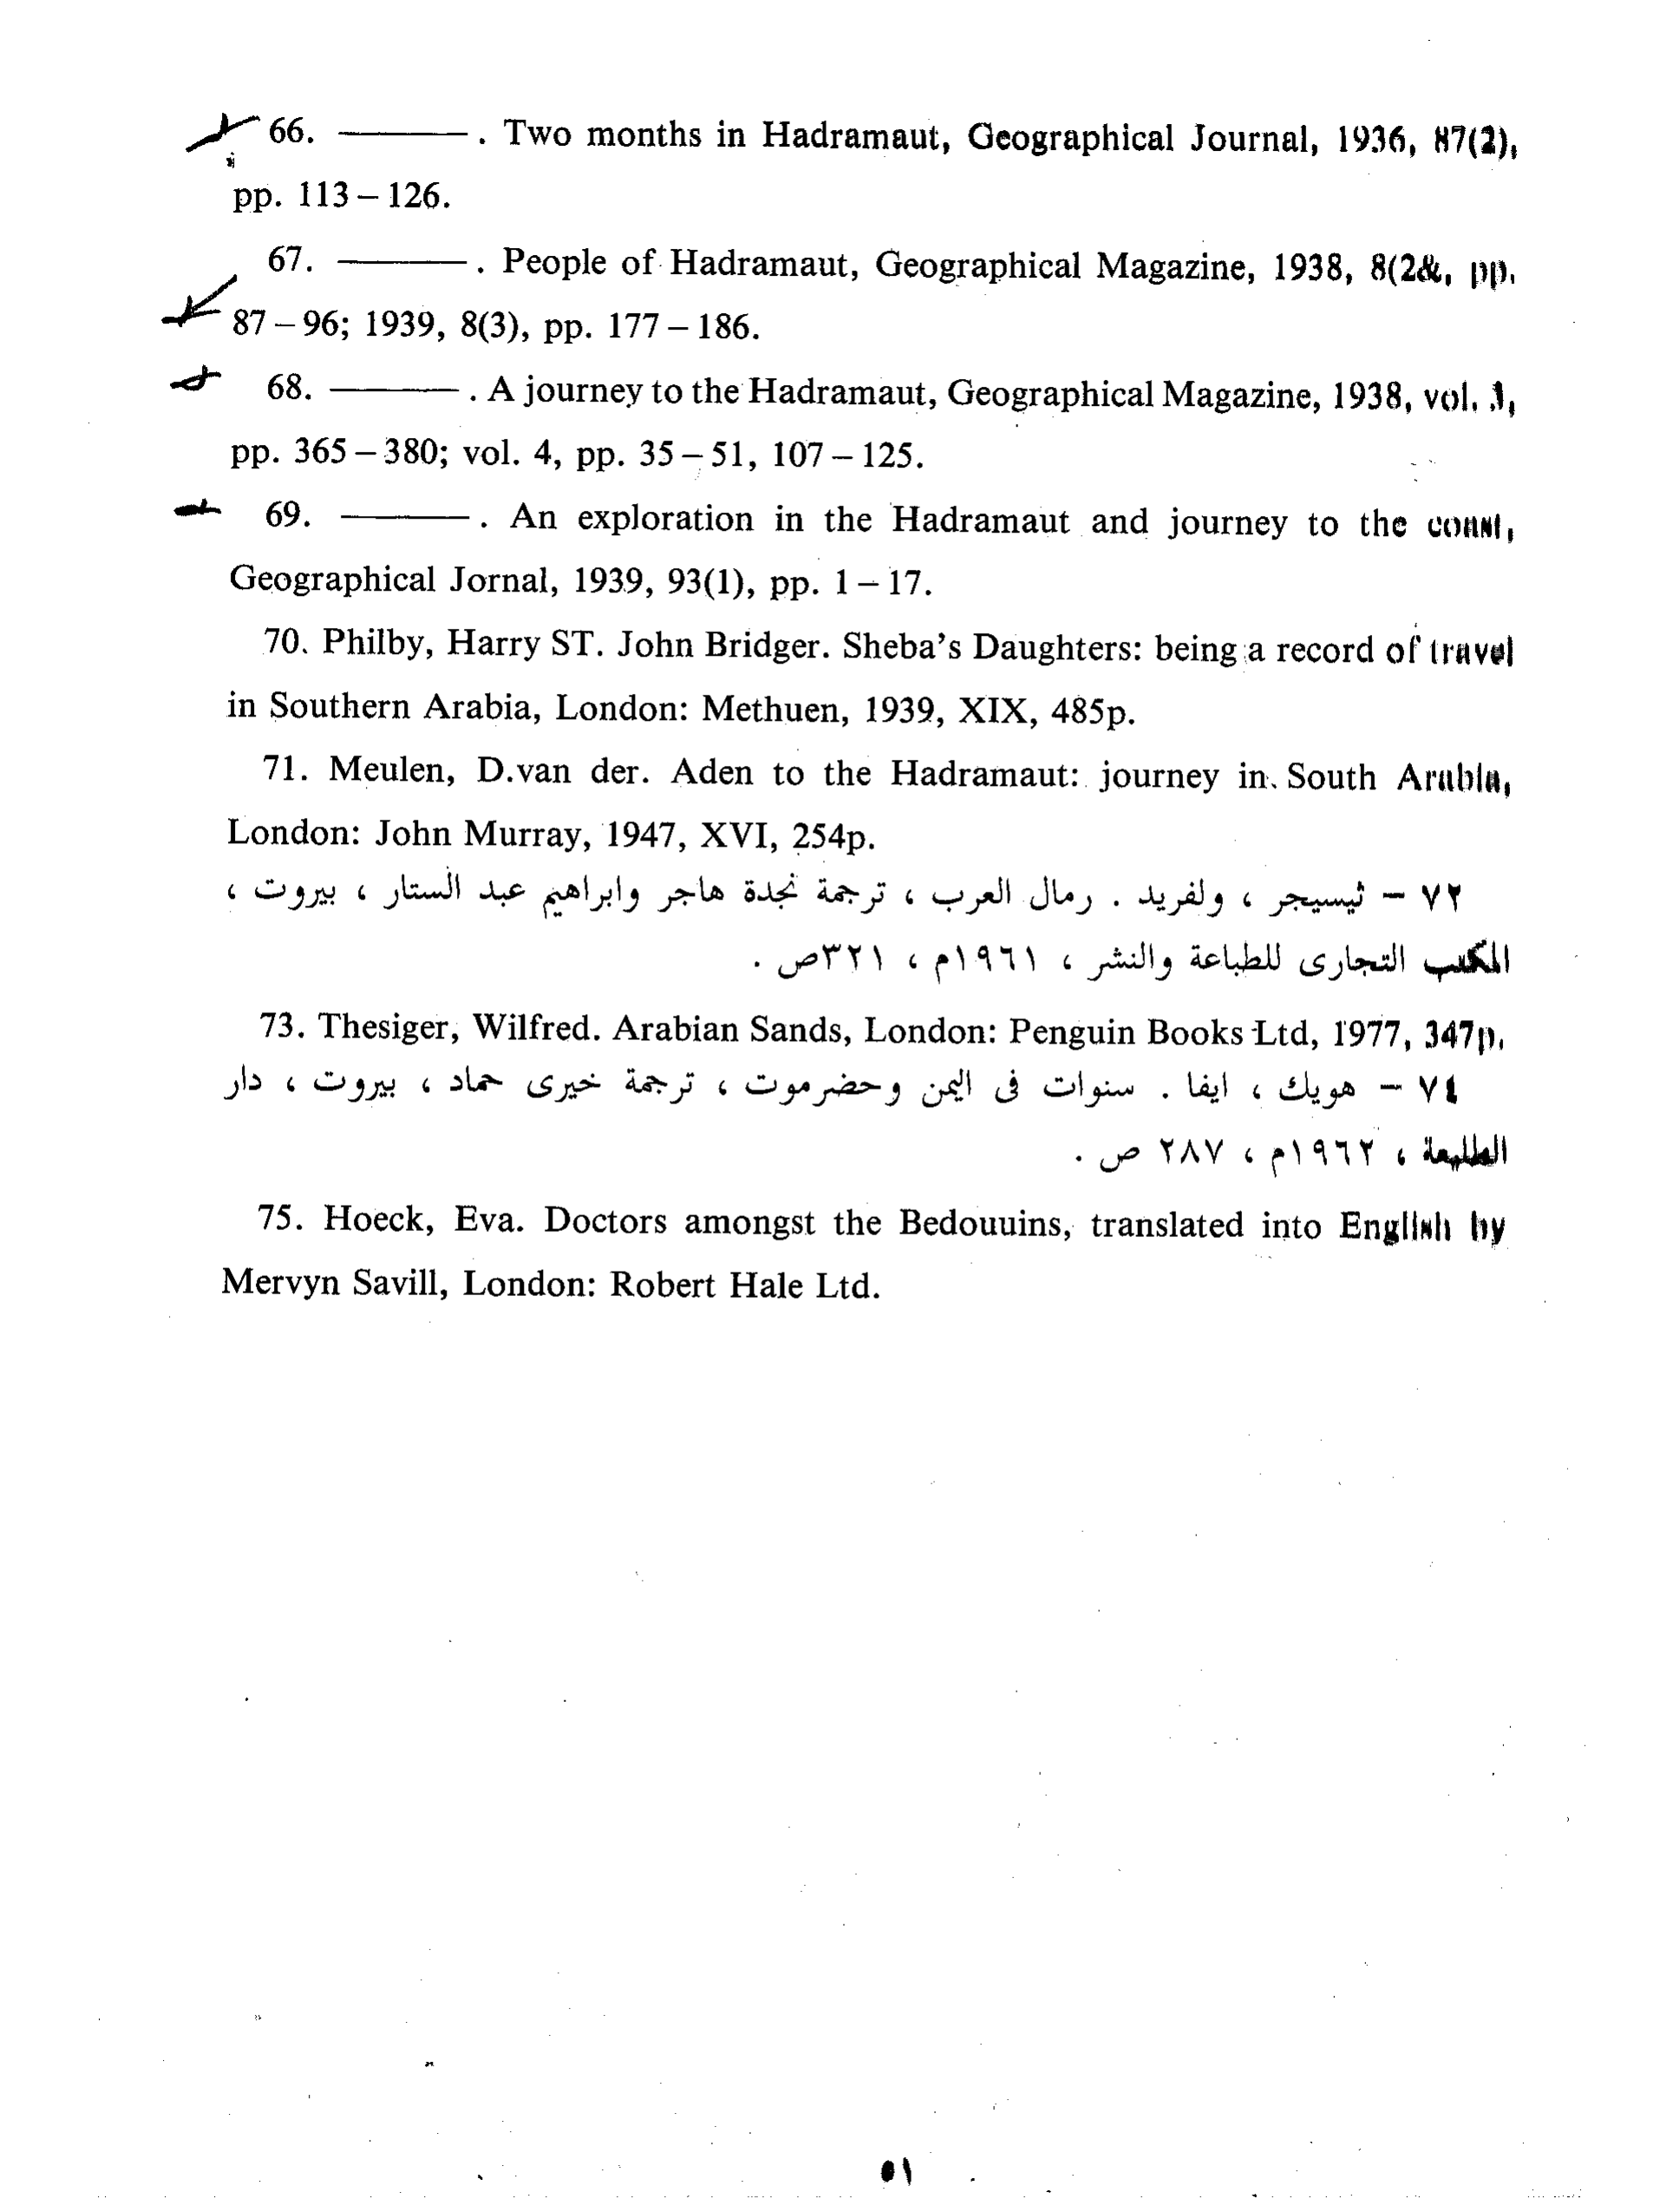 66. ———. Two months in Hadramaut, Geographical Journal, 1936, 87(2),
pp. 113 – 126.
67. ———. People of Hadramaut, Geographical Magazine, 1938, 8(2&, pp.
87 – 96; 1939, 8(3), pp. 177 – 186.
68. ———. A journey to the Hadramaut, Geographical Magazine, 1938, vol. 3,
pp. 365 – 380; vol. 4, pp. 35 – 51, 107 – 125.
69. ———. An exploration in the Hadramaut and journey to the coast,
Geographical Jornal, 1939, 93(1), pp. 1 – 17.
70. Philby, Harry ST. John Bridger. Sheba's Daughters: being a record of travel
in Southern Arabia, London: Methuen, 1939, XIX, 485p.
71. Meulen, D.van der. Aden to the Hadramaut: journey in South Arabia,
London: John Murray, 1947, XVI, 254p.
٧٢ – ثيسيجر ، ولفريد . رمال العرب ، ترجمة نجدة هاجر وابراهيم عبد الستار ، بيروت ،
المكتب التجارى للطباعة والنشر ، ١٩٦١م ، ٣٢١ص .
73. Thesiger, Wilfred. Arabian Sands, London: Penguin Books Ltd, 1977, 347p.
٧٤ – هويك ، ايفا . سنوات فى اليمن وحضرموت ، ترجمة خيرى حماد ، بيروت ، دار
الطليعة ، ١٩٦٢م ، ٢٨٧ ص .
75. Hoeck, Eva. Doctors amongst the Bedouuins, translated into English by
Mervyn Savill, London: Robert Hale Ltd.
٥١